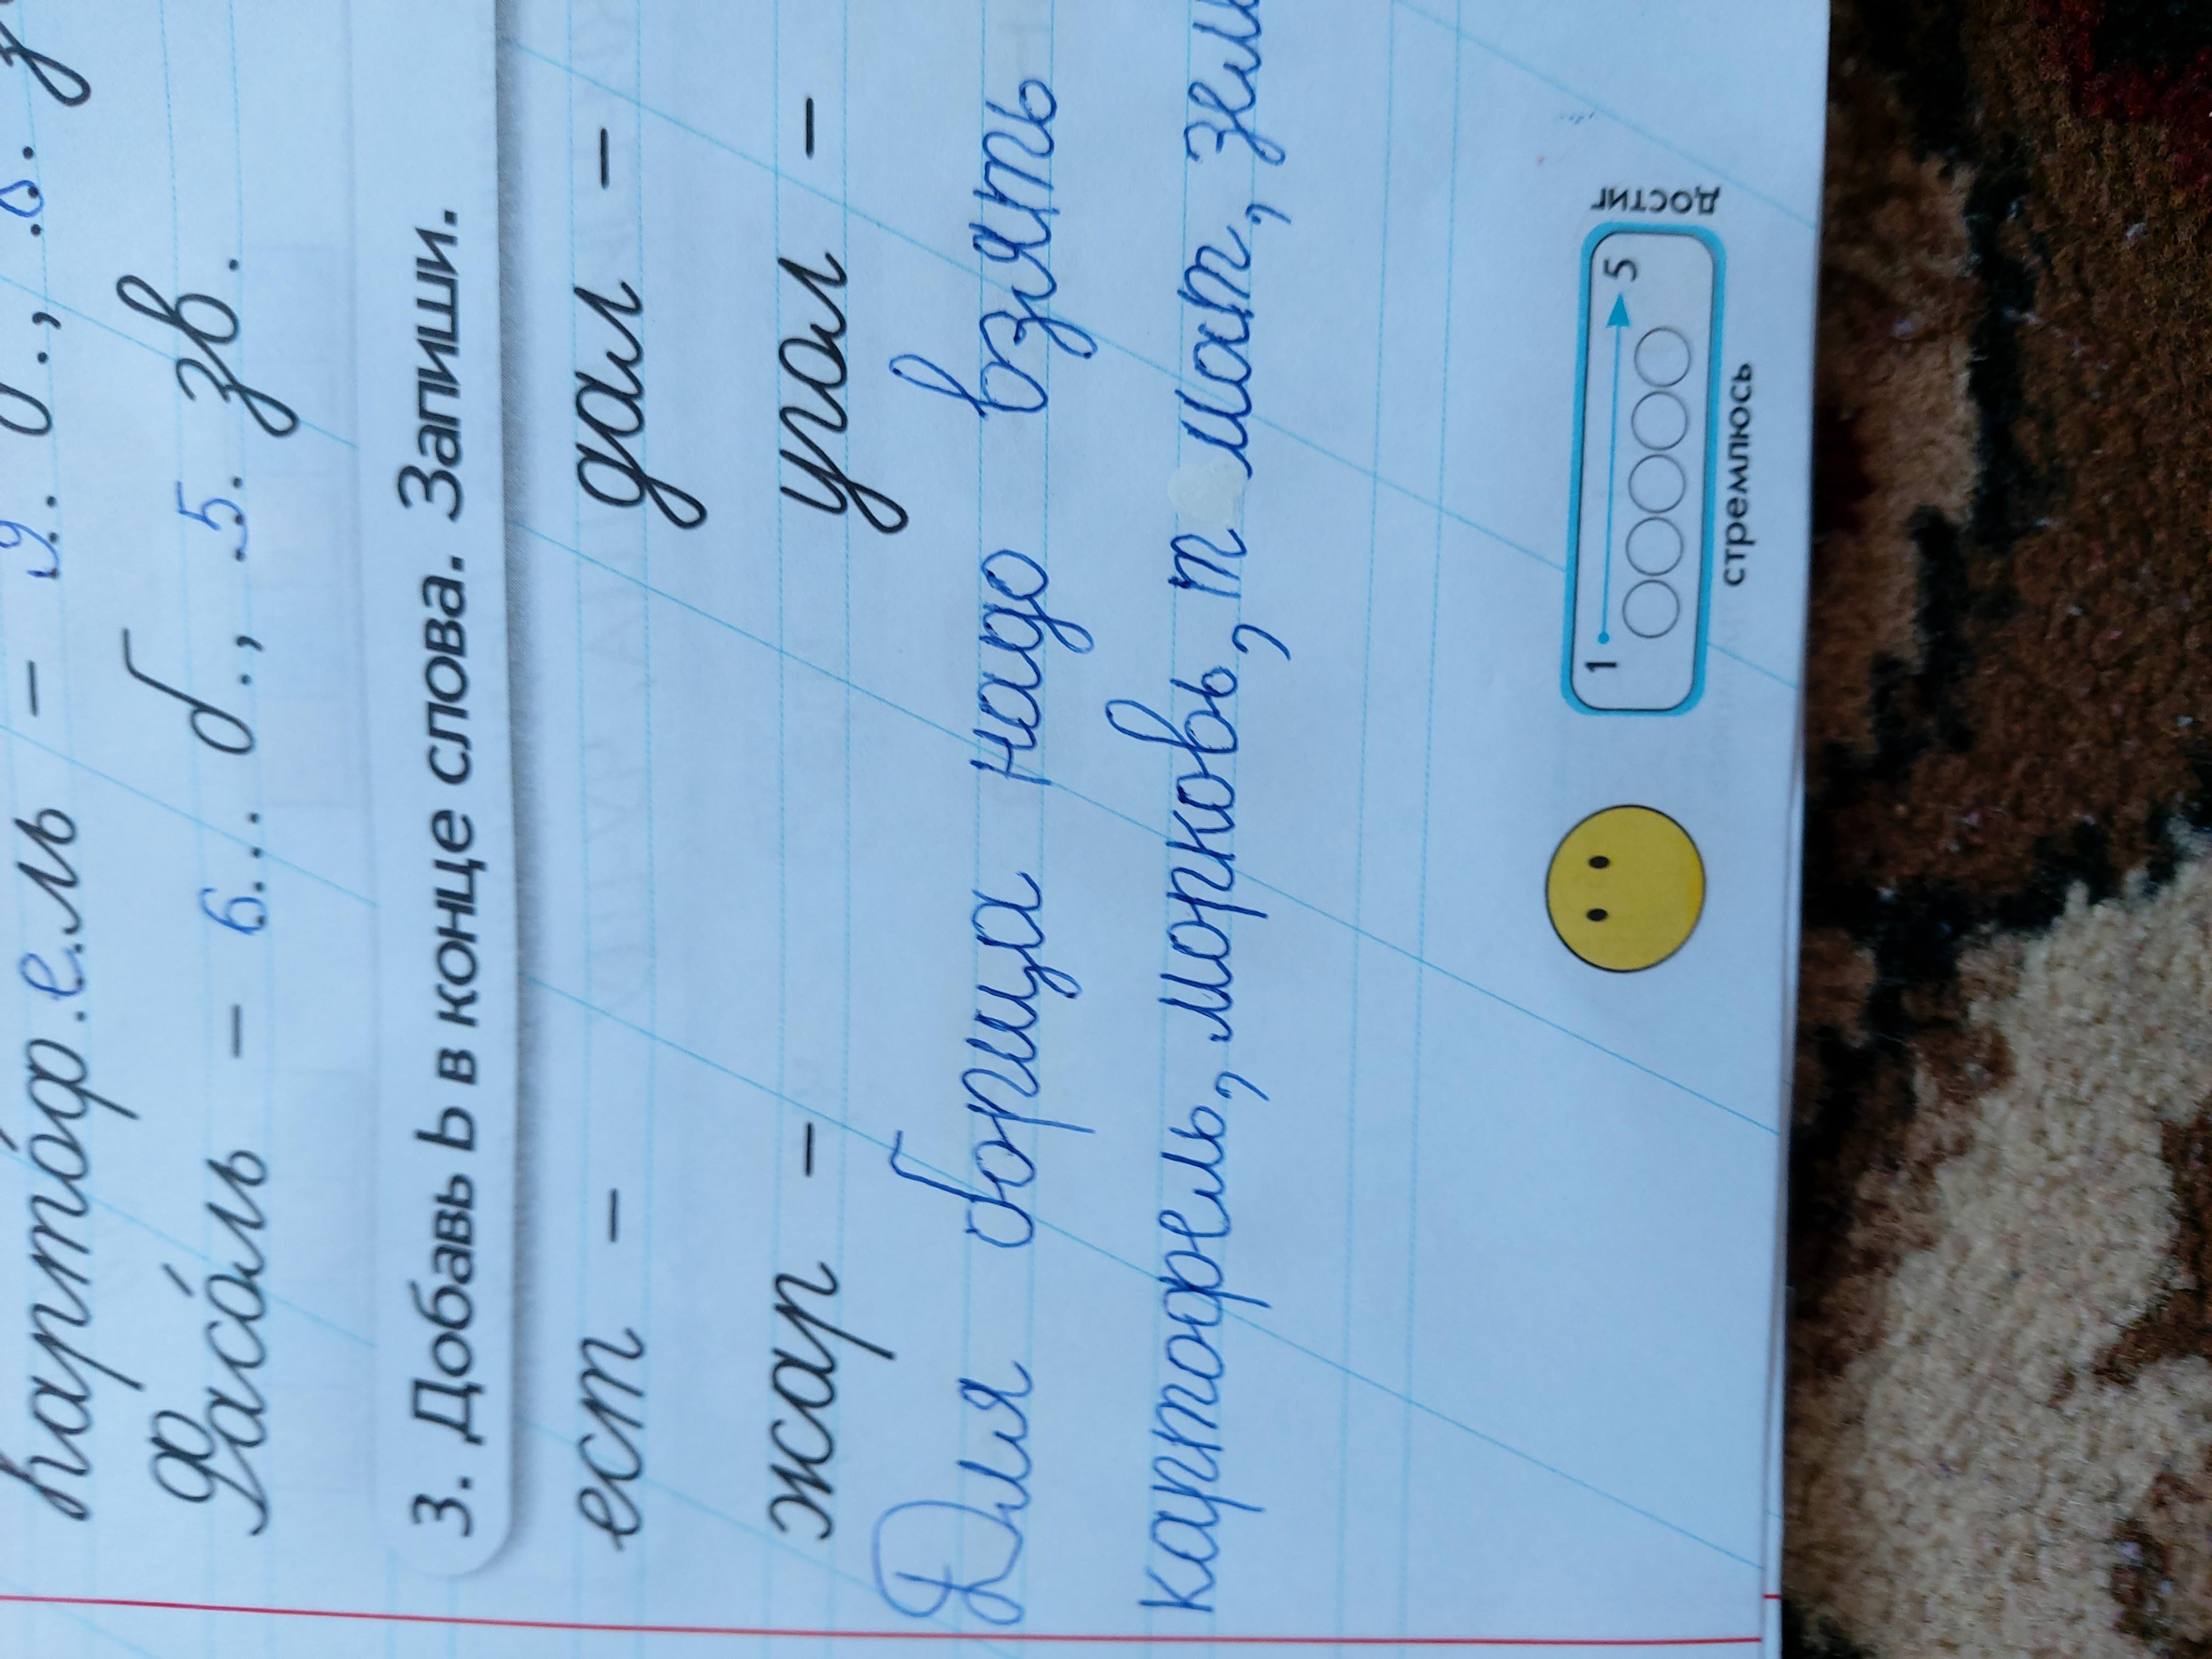 картоф.е.ль – .9.. б., .8. з
Фасоль – 6... б., .5. зв.
3. Добавь Ь в конце слова. Запиши.
ест – дал –
жар – угол –
Для борща надо взять
картофель, морковь, т мат, зел
1 5
достиг
стремлюсь